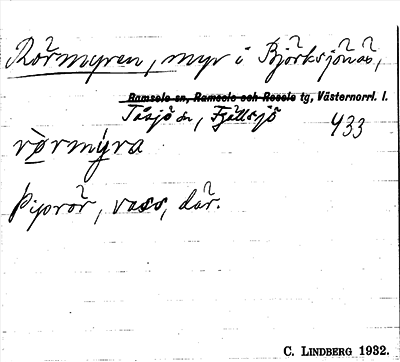 Rörmyren, myr i Björksjönäs,
Ramsele sn, Ramsele och Resele tg, Västernorrl. l.
Tåsjö sn, Fjällsjö
433
rörmýra
Piprör, vass, där.
C. LINDBERG 1932.